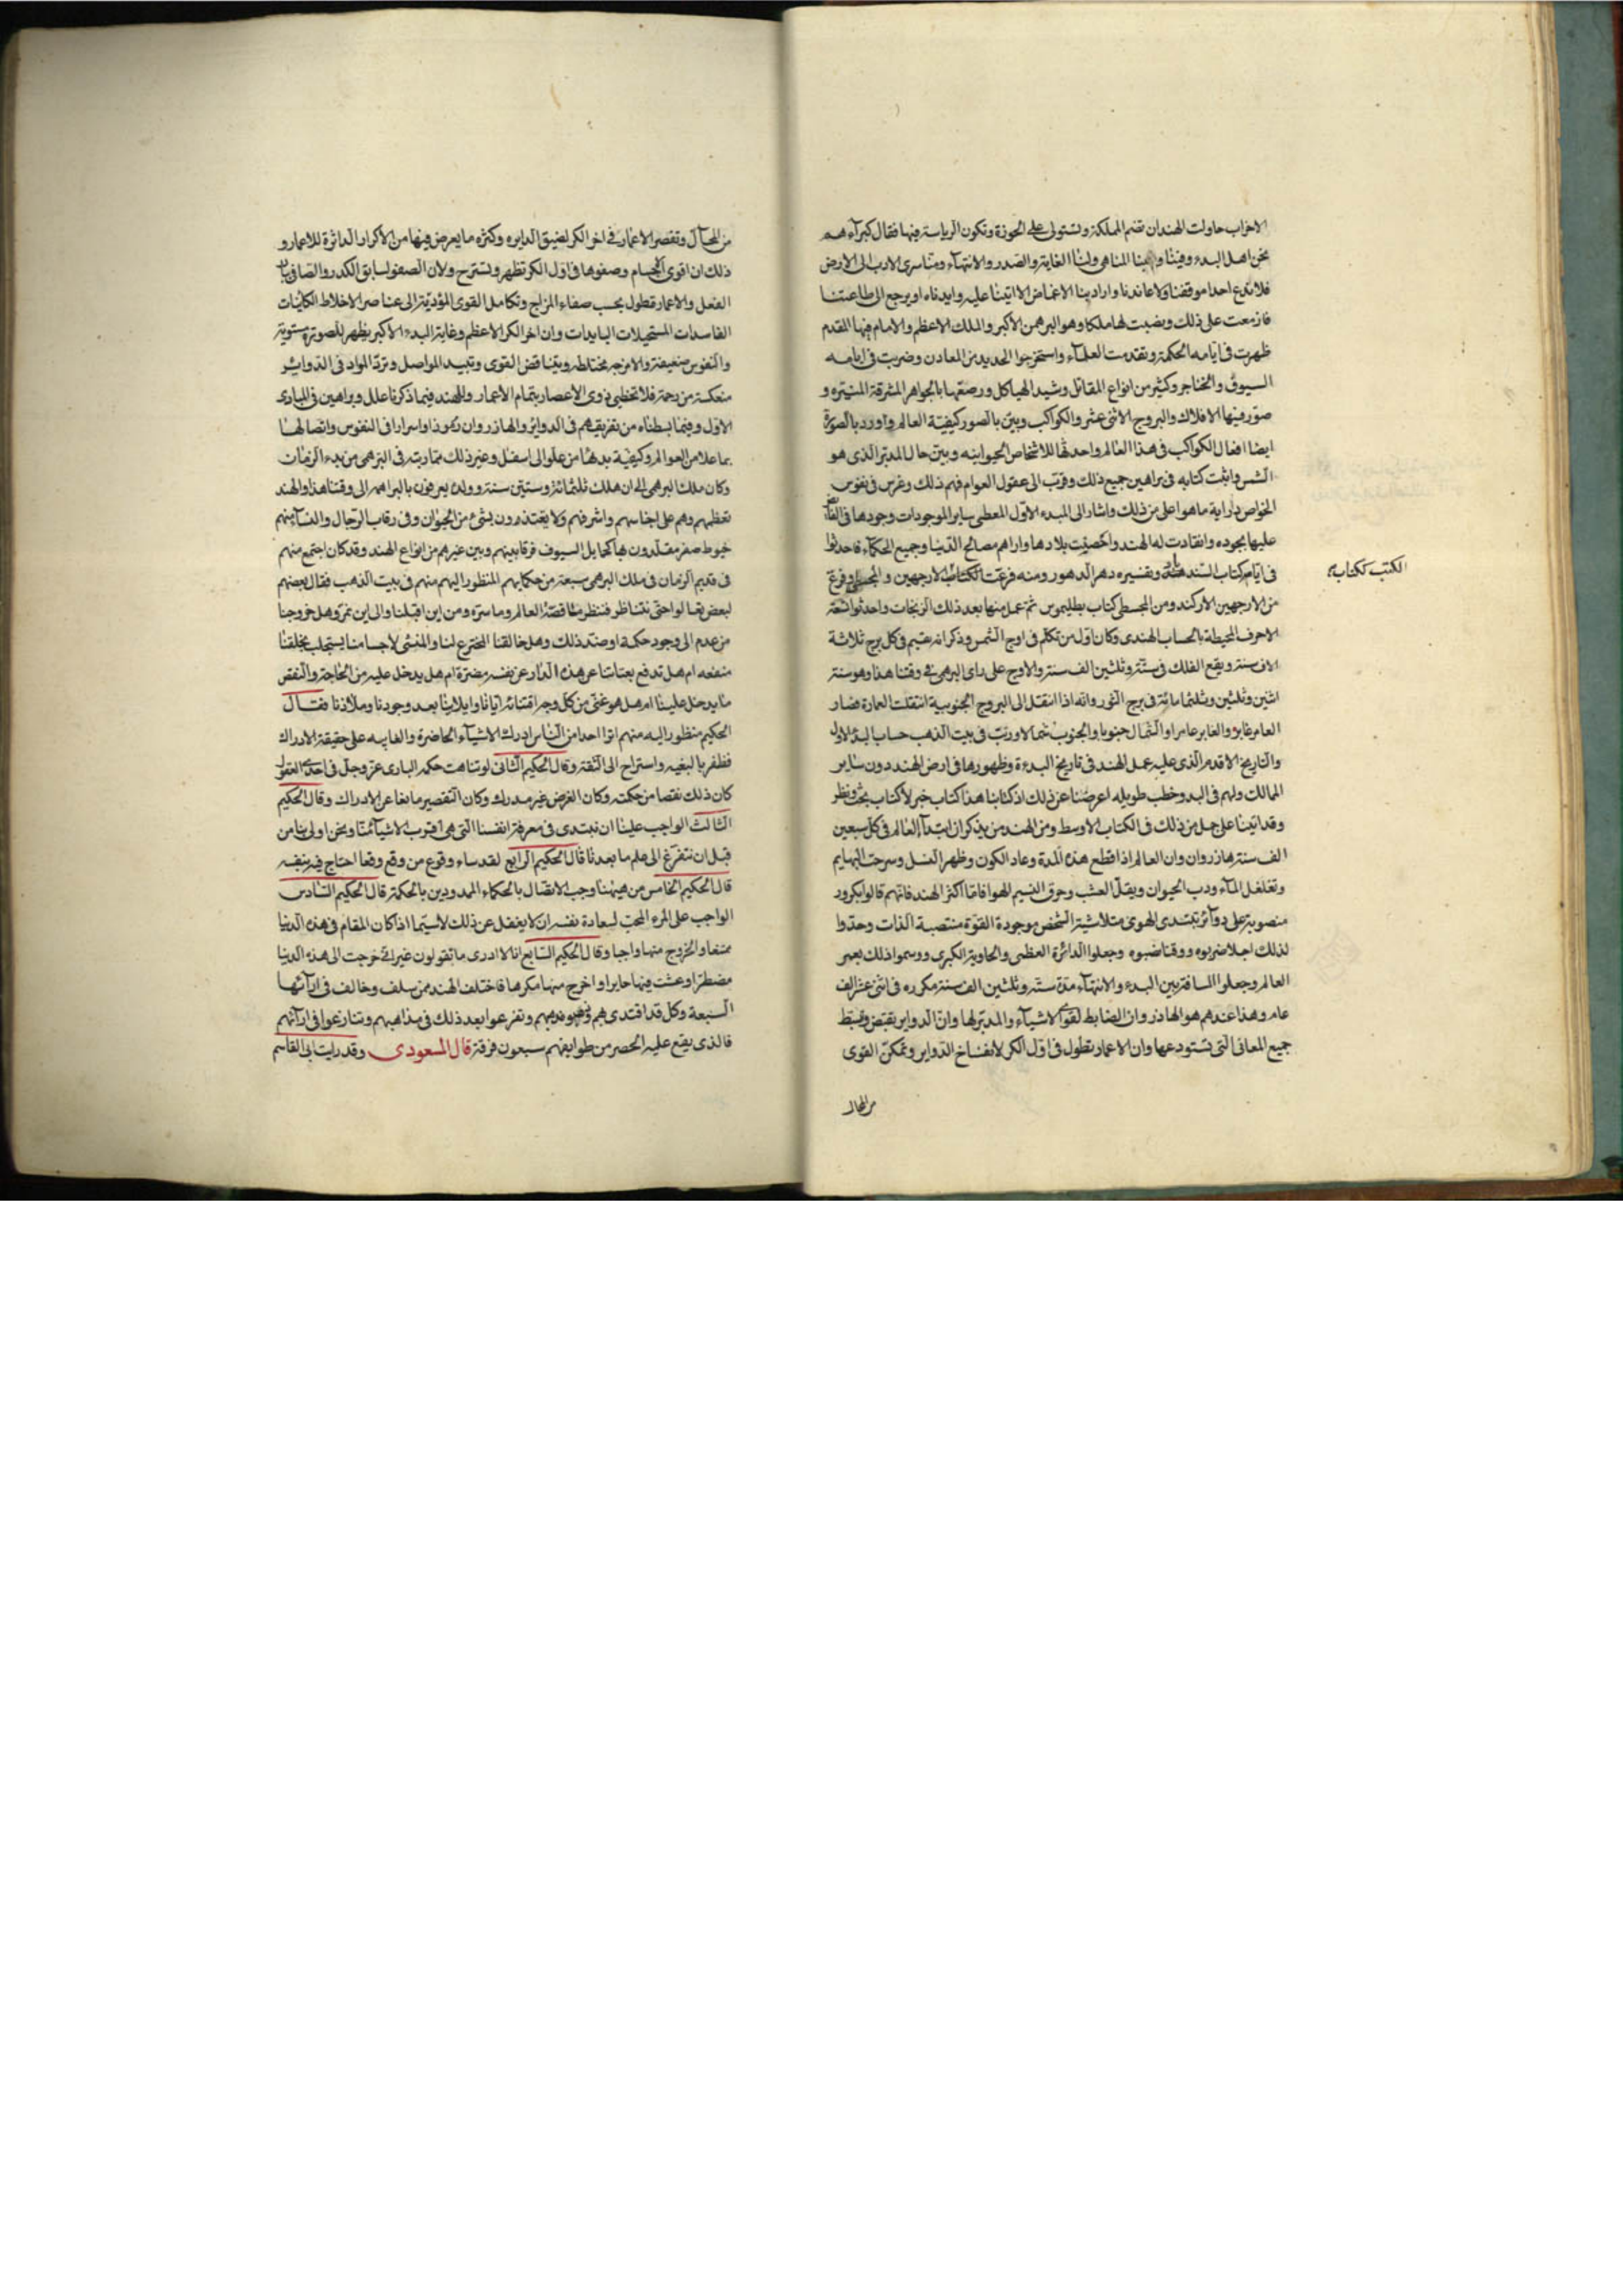 الاحزاب حاولت الهند ان تضم المملكة وتستولى على الحوزة وتكون الرياسة فيها فقال كبرآءهم
نحن اهل البدء وفينا والينا التناهى ولنا الغاية والصدر والانتهآء ومنا سرى الاب الى الارض
فلا ندع احدا موقفنا ولا عاندنا واراد بنا الاغماض الا اتينا عليه وابدناه او يرجع الى طاعتنا
فازمعت على ذلك ونصبت لها ملكا وهو البرهمن الاكبر والملك الاعظم والامام فيها المقدم
ظهرت فى ايامه الحكمة وتقدمت العلمآء واستخرجوا الحديد من المعادن وضربت فى ايامه
السيوف والخناجر وكثير من انواع المقاتل وشيد الهياكل ورصعها بالجواهر المشرقة المنيره و
صور فيها الافلاك والبروج الاثنى عشر والكواكب وبين بالصور كيفية العالم واورد بالصورة
ايضا افعال الكواكب فى هذا العالم واحداثها للاشخاص الحيوانيه وبين حال المدبر الذى هو
الشمس واثبت كتابه فى براهين جميع ذلك وقرب الى عقول العوام فهم ذلك وغرس فى نفوس
الخواص دراية ما هو اعلى من ذلك واشار الى المبدء الاول المعطى ساير الموجودات وجودها الفائض
عليها بجوده وانقادت له الهند واخصبت بلادها واراهم مصالح الدنيا وجميع الحكمآء فاحدثوا
فى ايامه كتاب السندهند وتفسيره دهر الدهور ومنه فرعت الكتاب الارجهين والمجسطى وفرع
من الارجهين الاركند ومن المجسطى كتاب بطليموس ثم عمل منها بعد ذلك الزيجات واحدثوا التسعة
الاحرف المحيطة بالحساب الهندى وكان اول من تكلم فى اوج الشمس وذكر انه يقيم فى كل برج ثلاثة
الاف سنة ويقع الفلك فى ستة وثلثين الف سنة والاوج على راى البرهمى فى وقتنا هذا وهو سنة
اثنين وثلثين وثلثمائة فى برج الثور وانه اذا انتقل الى البروج الجنوبية انتقلت العمارة فصار
العامر غابر والغابر عامرا والشمال جنوبا والجنوب شمالا ورتب فى بيت الذهب حساب البدء الاول
والتاريخ الاقدم الذى عليه عمل الهند فى تاريخ البدءة وظهورها فى ارض الهند دون ساير
الممالك ولهم فى البدو خطب طويله اعرضنا عن ذلك اذ كتابنا هذا كتاب خبر لا كتاب بحث ونظر
وقد اتينا على جمل من ذلك فى الكتاب الاوسط ومن الهند من يذكر ان ابتدآ العالم فى كل سبعين
الف سنة هازروان وان العالم اذا قطع هذه المدة وعاد الكون وظهر النسل وسرحت البهايم
وتغلغل المآء ودب الحيوان وبقل العشب وخرق النسيم الهوا فاما اكثر الهند فانهم قالوا بكرور
منصوبة على دوآئر تبتدى القوى متلاشية الشخص موجودة القوة منتصبة الذات وحدوا
لذلك اجلا ضربوه ووقتا نصبوه وجعلوا الدائرة العظمى والحاوية الكبرى ووسموا ذلك بعمر
العالم وجعلوا المسافة بين البدء والانتهآء مدة ستة وثلثين الف سنة مكرره فى اثنى عشر الف
عام وهذا عندهم هو الهاذروان الضابط لقوآء الاشيآء والمدبر لها وان الدواير تقبض وتبسط
جميع المعانى التى تستودعها وان الاعمار تطول فى اول الكر لانفساخ الدواير وتمكن القوى
من المجال
الكتب ككتاب
من المجال وتقصر الاعمار فى اخر الكر لضيق الدايره وكثره ما يعرض فيها من الاكرار الداثرة للاعمار و
ذلك ان اقوى الاجسام وصفوها فى اول الكر تظهر وتسترح ولان الصفو لسابق الكدر والصافى
الفعل والاعمار تطول بحسب صفاء المزاج وتكامل القوى المؤدية الى عناصر الاخلاط الكاينات
الفاسدات المستحيلات البايدات وان اخر الكر الاعظم وغاية البدء الاكبر يظهر الصورة مستوية
والنفوس ضعيفة والامزجة مختلطة ويتناقض القوى وتبيد المواصل وترد المواد فى الدوائر
منعكسة مزدحمة فلا تحظى ذوى الاعصار بتمام الاعمار وللهند فيما ذكرنا علل وبراهين فى المبادى
الاول وفيما بسطناه من تفريقهم فى الدواير والهازروان رموز واسرار فى النفوس واتصالها
بما علا من العوالم وكيفية بدءها من علو الى اسفل وغير ذلك مما رتبه فى البرهمى من بدء الزمان
وكان ملك البرهمى الى ان هلك ثلثمائة وستين سنة وولده يعرفون بالبراهمة الى وقتنا هذا والهند
تعظمهم وهم على اجناسهم واشرفهم ولا يغتذون بشئ من الحيوان وفى رقاب الرجال والنسآء منهم
خيوط صفر مقلدون بها كحمايل السيوف فرقا بينهم وبين غيرهم من انواع الهند وقد كان اجتمع منهم
فى قديم الزمان فى ملك البرهمى سبعة من حكمايهم المنظور اليهم منهم فى بيت الذهب فقال بعضهم
لبعض تعالوا حتى نتناظر فننظر ما قصة العالم وما سره ومن اين اقبلنا والى اين نمر وهل خروجنا
من عدم الى وجود حكمة او ضد ذلك وهل خالقنا المخترع لنا والمنشئ لاجسامنا يستجلب بخلقنا
منفعه ام هل تدفع بفنائنا عن هذه الدار عن نفسه مضرة ام هل يدخل عليه من الحاجة والنقص
ما يدخل علينا ام هل هو غنى من كل وجه افنائه ايانا وايلامنا بعد وجودنا وملاذنا فقال
الحكيم منظور اليه منهم اترا احدا من الناس ادرك الاشيآء الحاضرة والغايبه على حقيقة الادراك
فظفر بالبغيه واستراح الى الثقة وقال الحكيم الثانى لو تناهت حكمه البارى عز وجل فى احد العقول
كان ذلك نقصا من حكمته وكان الغرض غير مدرك وكان التقصير مانعا عن الادراك وقال الحكيم
الثالث الواجب علينا ان نبتدى فى معرفة انفسنا التى هى اقرب الاشيآء منا ونحن اولى بنا من
قبل ان نتفرغ الى علم ما بعدنا قال الحكيم الرابع لقد ساء وقوع من وقع وقعا احتاج فيه بنفسه
قال الحكيم الخامس من هيهنا وجب الاتصال بالحكماء الممدودين بالحكمة قال الحكيم السادس
الواجب على المرء المحب لسعادة نفسه ان لا يغفل عن ذلك لاسيما اذا كان المقام فى هذه الدنيا
ممتنعا والخروج منها واجبا وقال الحكيم السابع انا لا ادرى ما تقولون غير انى خرجت الى هذه الدنيا
مضطرا وعشت فيها حايرا واخرج منها مكرها فاختلف الهند ممن سلف وخالف فى ارآئها
السبعة وكل قد اقتدى بهم وتفرعوا بعد ذلك فى مذاهبهم وتنازعوا فى ارآئهم
فالذى يقع عليه الحصر من طوايفهم سبعون فرقة قال المسعودى وقد رايت ابى القاسم